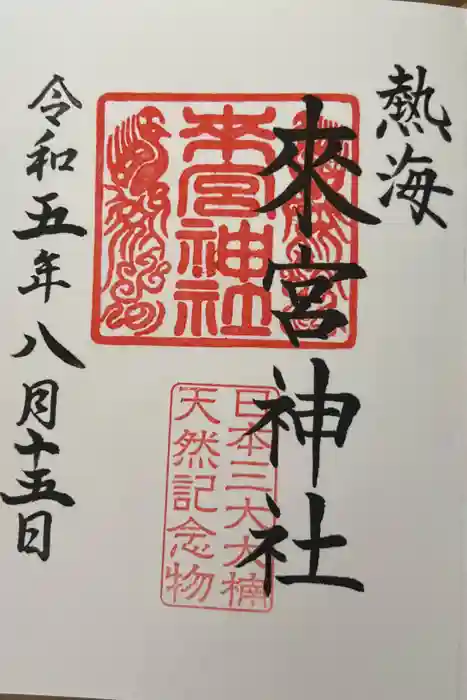 熱海
來宮神社
来宮神社
日本三大大楠
天然記念物
令和五年八月十五日